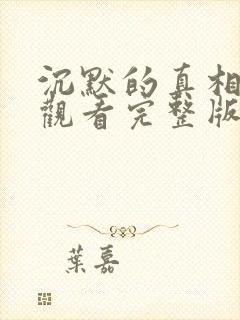 沉默的真相
觀看完整版
葉嘉